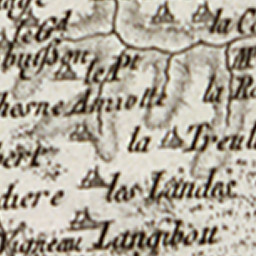 le Gd
la C
buisson
le Pt
M
la R
Amiotte
la Treul
bert
les Landes
diere
Vigneau
Langibou